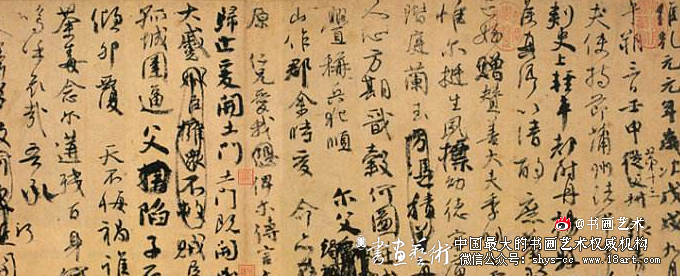 維乾元元年歲次戊戌九月
午朔三日壬申第十三從父
夫使持節蒲州諸
刺史上輕車都尉丹
侯真卿以清酌庶
亡姪贈贊善大夫季
惟爾挺生夙標幼德
階庭蘭玉方憑積善
人心方期戩穀何圖
釁稱兵犯順 爾父
山作郡余時受命
原 仁兄愛我恐俾爾傳言
歸止爰開土門土門既開
大蹙賊臣擁衆不救賊臣
孤城圍逼父擒陷子死
傾卵覆 天不悔禍誰
荼毒念爾遘殘百身
嗚呼哀哉吾承
@书画艺术
書畫藝術
中国最大的书画艺术权威机构
微信公众号:shys-cc www.18art.com